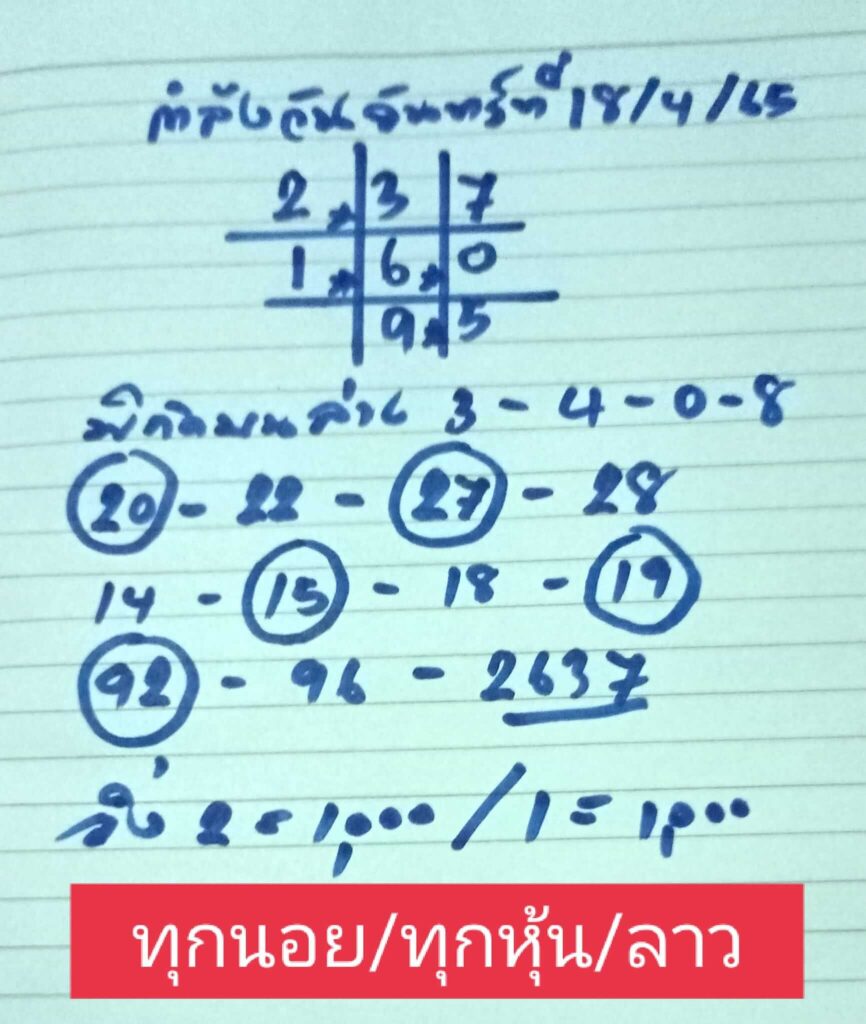 กำลังวันจันทร์ที่ 18/4/65
2 . 3 7
1 . 6 . 0
9 . 5
พิกัดบนล่าง 3 - 4 - 0 - 8
20 - 22 - 27 - 28
14 - 15 - 18 - 19
92 - 96 - 2637
วิ่ง 2 = 1,000 / 1 = 1,000
ทุกนอย/ทุกหุ้น/ลาว